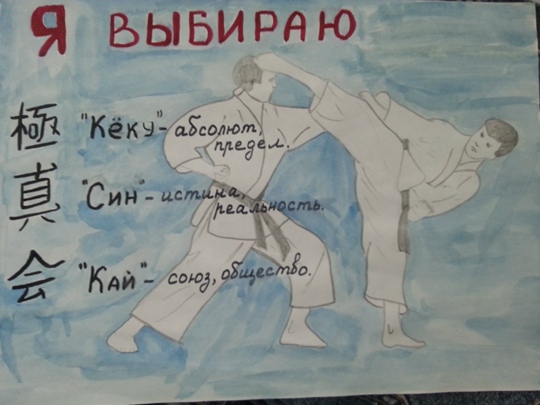 Я ВЫБИРАЮ
極 "Кёку"- абсолют,
предел.
真 "Син" - истина,
реальность.
会 "Кай" - союз, общество.